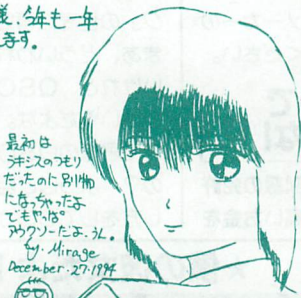 様、今年も一年
ます。
最初は
ラキシスのつもり
だったのに別物
になっちゃったよ
でもやっぱ
アウクソーだよ、うん。
by. Mirage
December. 27. 1994